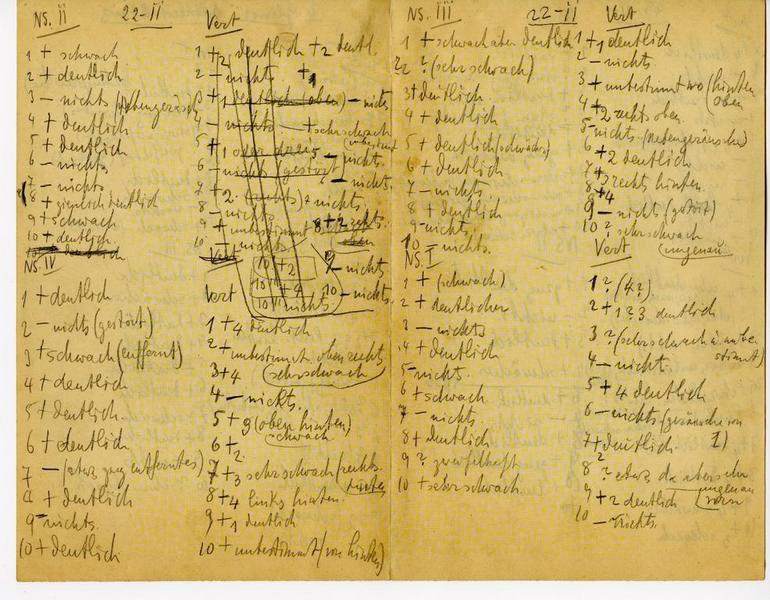 NS. II 22-II
1 + schwach
2 + deutlich
3 — nichts (Nebengeräusch
4 + deutlich
5 + deutlich
6 — nichts
7 — nichts
8 + ziemlich deutlich
9 + schwach
10 + deutlich
NS. IV
1 + deutlich
2 — nichts (gestört)
3 + schwach (entfernt)
4 + deutlich
5 + deutlich
6 + deutlich
7 — (etwas ganz entferntes)
8 + deutlich
9 — nichts
10 + deutlich
Vert
1 + 2 deutlich + 2 deutl.
2 — nichts + 1
3 + 1 deutlich (oben) — nichts
4 — nichts — + sehr schwach
5 + 1 oder drei — nichts.
6 — nichts (gestört) — nichts.
7 + 2 (rechts) — nichts
8 — nichts
9 + unbestimmt 8 + 2 rechts
10 nichts
Vert
10 + 2
9 — nichts
10 + 4
10 nichts 10 — nichts
Vert
1 + 4 deutlich
2 + unbestimmt oben rechts
3 + 4 (sehr schwach)
4 — nichts.
5 + 3 (oben hinten)
schwach
6 + 2
7 + 3 sehr schwach (rechts
hinten
8 + 4 links hinten.
9 + 1 deutlich
10 + unbestimmt (von hinten)
NS. III 22-II
1 + schwach aber deutlich
2 ? (sehr schwach)
3 + deutlich
4 + deutlich
5 + deutlich (schwächer)
6 + deutlich
7 — nichts
8 + deutlich
9 — nichts
10 — nichts.
NS. I
1 + (schwach)
2 + deutlicher
3 — nichts
4 + deutlich
5 — nichts.
6 + schwach
7 — nichts
8 + deutlich
9 ? zweifelhaft
10 + sehr schwach
Vert
1 + 1 deutlich
2 — nichts
3 + unbestimmt wo (hinten
oben
4 + 2 rechts oben.
5 — nichts. (Nebengeräusche)
6 + 2 deutlich
7 + 3 rechts hinten.
8 + 4
9 — nichts (gestört)
10 ? sehr schwach
ungenau
Vert
1 ? (4?)
2 + 1 ? 3 deutlich
3 ? (sehr schwach u. unbe-
stimmt)
4 — nichts.
5 + 4 deutlich
6 — nichts (geräusche von
1)
7 + deutlich
2
8 ? etwas da aber sehr
ungenau
9 + 2 deutlich (vorn
10 — nichts.